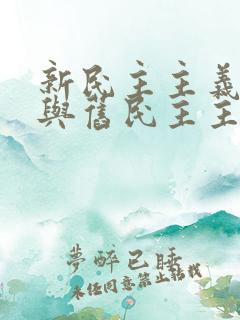 新民主主義
與舊民主主
夢醉已睡
未经同意禁止转载